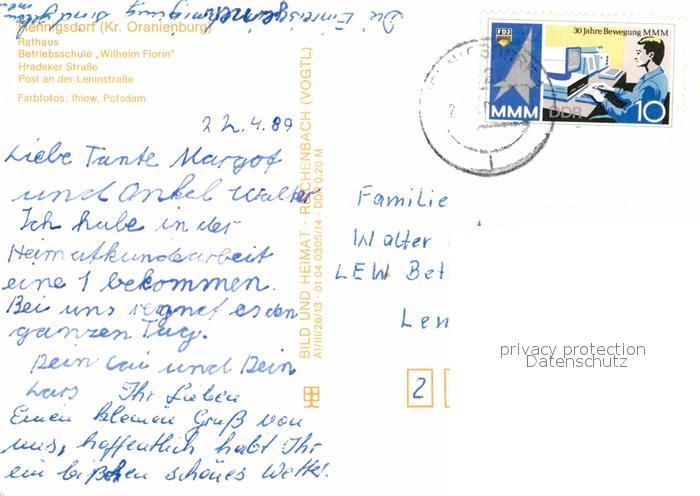 Die Einreisegenehmigung
sind
Hennigsdorf (Kr. Oranienburg)
Rathaus
Betriebsschule „Wilhelm Florin"
Hradeker Straße
Post an der Leninstraße
Farbfotos: Ihlow, Potsdam
22.4.89
Liebe Tante Margot
und Onkel Walter
Ich habe in der
Heimatkundearbeit
eine 1 bekommen.
Bei uns regnet es den
ganzen Tag.
Dein Cai und Dein
Lars Ihr Lieben
Einen kleinen Gruß von
uns, hoffentlich habt Ihr
ein bißchen schönes Wetter.
BILD UND HEIMAT · REICHENBACH (VOGTL)
A1/III/26/13 · 01 04 0305/14 · DDR 0,20 M
FDJ
30 Jahre Bewegung MMM
MMM
DDR
10
Familie
Walter
LEW Bet
Len
2
privacy protection
Datenschutz